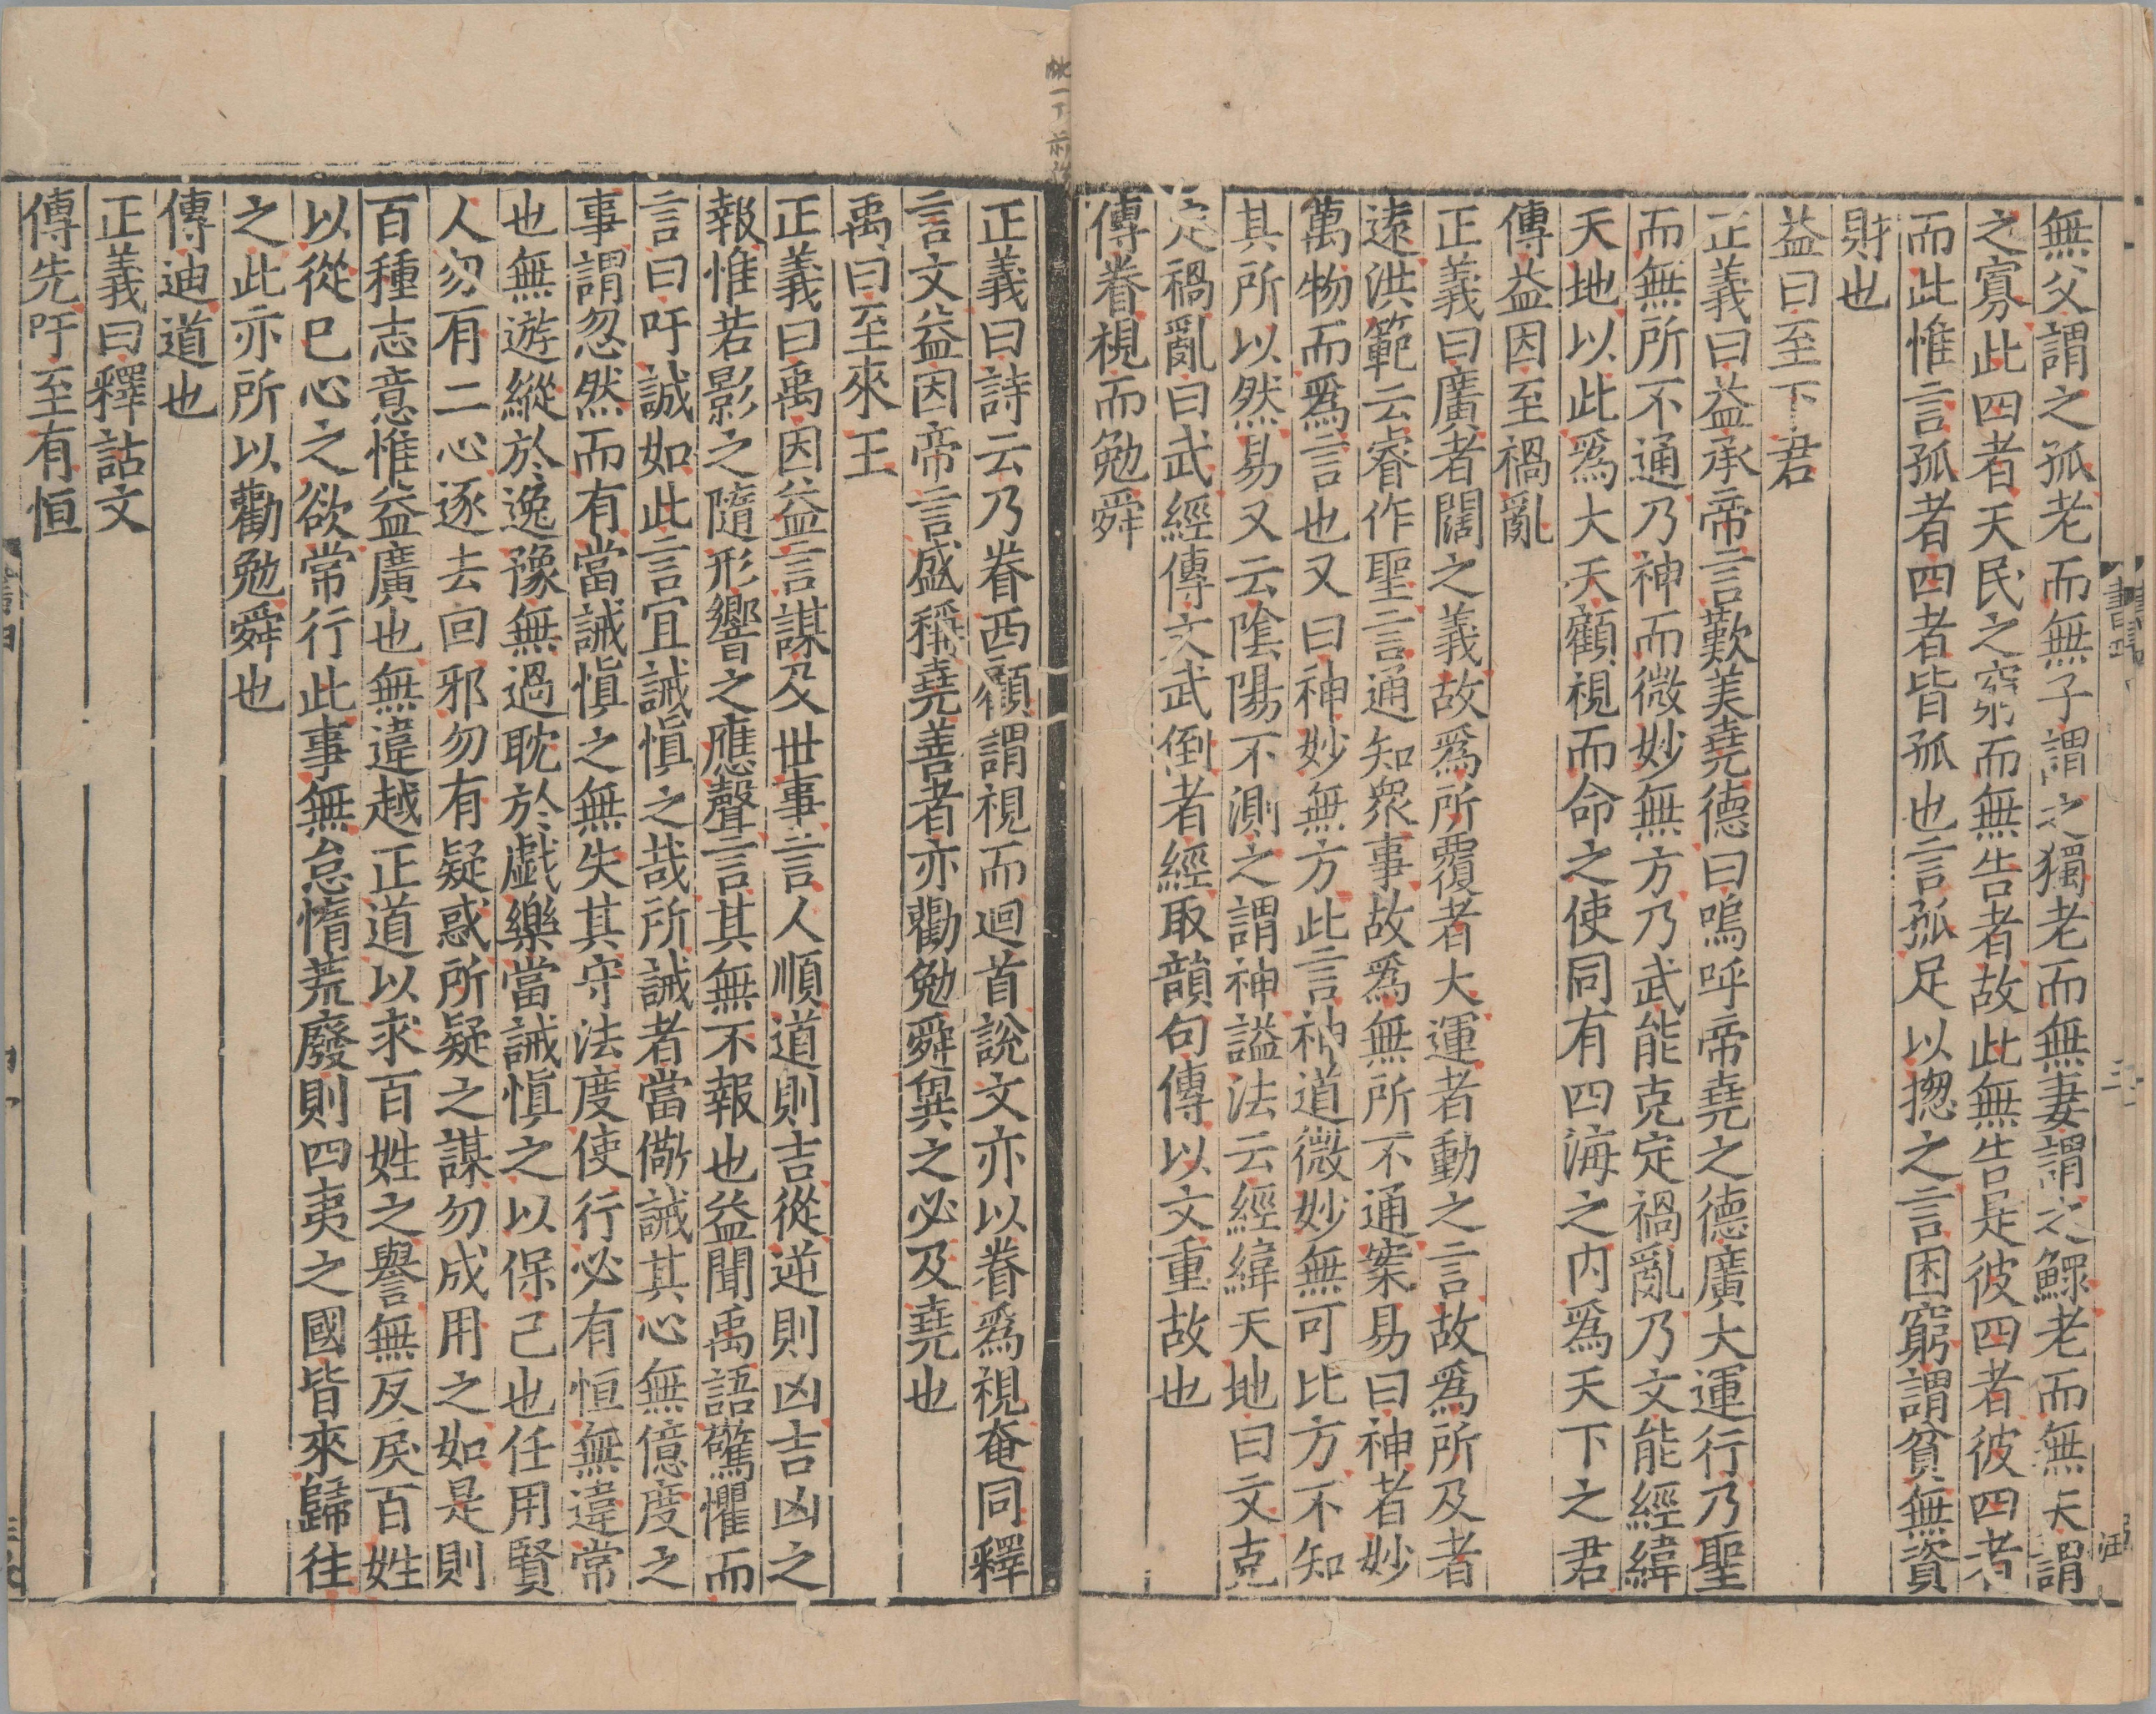 無父謂之孤老而無子謂之獨老而無妻謂之鰥老而無夫謂
之寡此四者天民之窮而無告者故此無告是彼四者彼四者
而此惟言孤者四者皆孤也言孤足以揔之言困窮謂貧無資
財也
益曰至下君
正義曰益承帝言歎美堯德曰嗚呼帝堯之德廣大運行乃聖
而無所不通乃神而微妙無方乃武能克定禍亂乃文能經緯
天地以此爲大天顧視而命之使同有四海之内爲天下之君
傳益因至禍亂
正義曰廣者闊之義故爲所覆者大運者動之言故爲所及者
遠洪範云睿作聖言通知衆事故爲無所不通案易曰神者妙
萬物而爲言也又曰神妙無方此言神道微妙無可比方不知
其所以然易又云陰陽不測之謂神謚法云經緯天地曰文克
定禍亂曰武經傳文武倒者經取韻句傳以文重故也
傳眷視而勉舜
正義曰詩云乃眷西顧謂視而迴首說文亦以眷爲視奄同釋
言文益因帝言盛稱堯善者亦勸勉舜兾之必及堯也
禹曰至來王
正義曰禹因益言謀及世事言人順道則吉從逆則凶吉凶之
報惟若影之隨形響之應聲言其無不報也益聞禹語驚懼而
言曰吁誠如此言宜誡愼之哉所誡者當儆誡其心無億度之
事謂忽然而有當誡愼之無失其守法度使行必有恒無違常
也無遊縱於逸豫無過耽於戱樂當誡愼之以保己也任用賢
人勿有二心逐去回邪勿有疑惑所疑之謀勿成用之如是則
百種志意惟益廣也無違越正道以求百姓之譽無反戾百姓
以從已心之欲常行此事無怠惰荒廢則四夷之國皆來歸往
之此亦所以勸勉舜也
傳迪道也
正義曰釋詁文
傳先吁至有恒